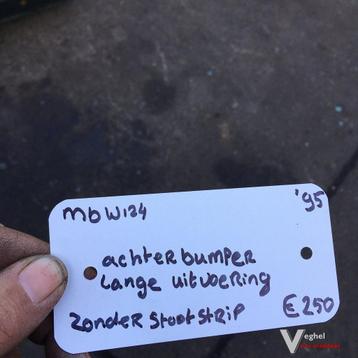 MbW124 '95
achterbumper
Lange uitvoering
zonder Stootstrip €250
Veghel